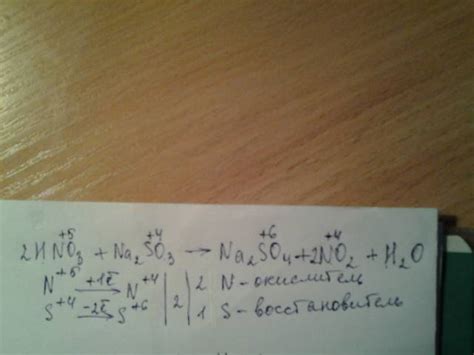 2HN⁺⁵O₃ + Na₂S⁺⁴O₃ → Na₂S⁺⁶O₄ + 2N⁺⁴O₂ + H₂O
N⁺⁵ +1ē → N⁺⁴ | 2 | 2 N - окислитель
S⁺⁴ -2ē → S⁺⁶ | 1 S - восстановитель